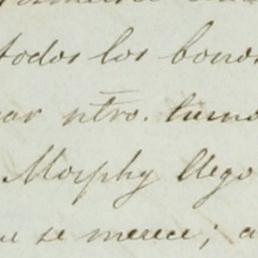 todos los bonos
ntro. turno
Morphy llego
se merece; a